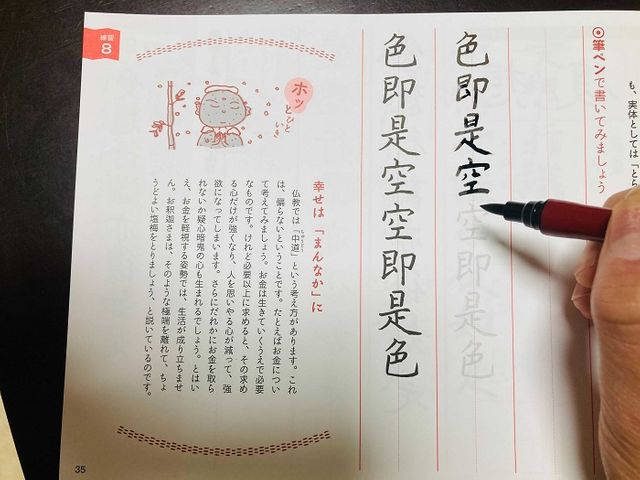 も、実体としては「とら
◎筆ペンで書いてみましょう
色即是空空即是色
色即是空空即是色
練習
8
ホッ
とひと
いき
幸せは「まんなか」に
仏教では「中道」という考え方があります。これ
ちゅうどう
は、偏らないということです。たとえばお金につい
て考えてみましょう。お金は生きていくうえで必要
なものです。けれど必要以上に求めると、その求め
る心だけが強くなり、人を思いやる心が減って、強
欲になってしまいます。さらにだれかにお金を取ら
れないか疑心暗鬼の心も生まれるでしょう。とはい
え、お金を軽視する姿勢では、生活が成り立ちませ
ん。お釈迦さまは、そのような極端を離れて、ちょ
うどよい塩梅をとりましょう、と説いているのです。
35